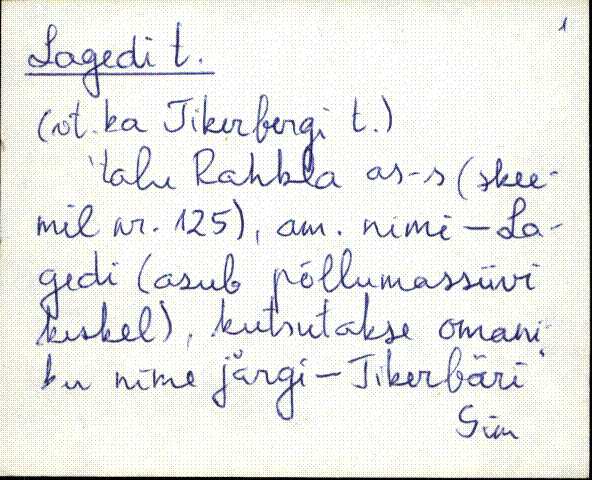 1
Lagedi t.
(vt. ka Tikerbergi t.)
'talu Rahkla as-s (skee-
mil nr. 125), am. nimi - La-
gedi (asub põllumassiivi
keskel), kutsutakse omani-
ku nime järgi - Tikerbäri"
Sim